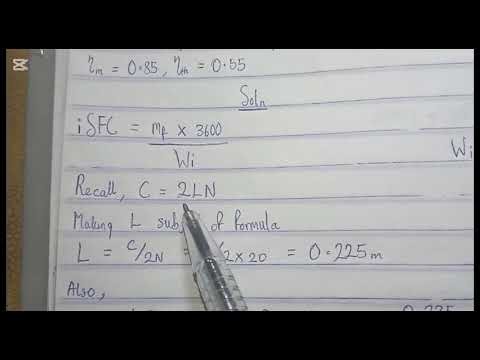 ηm = 0.85, ηth = 0.55
Soln
iSFC = mf × 3600
Wi
Wi
Recall, C = 2LN
Making L of formula
L = C/2N = 2×20 = 0.225m
Also,